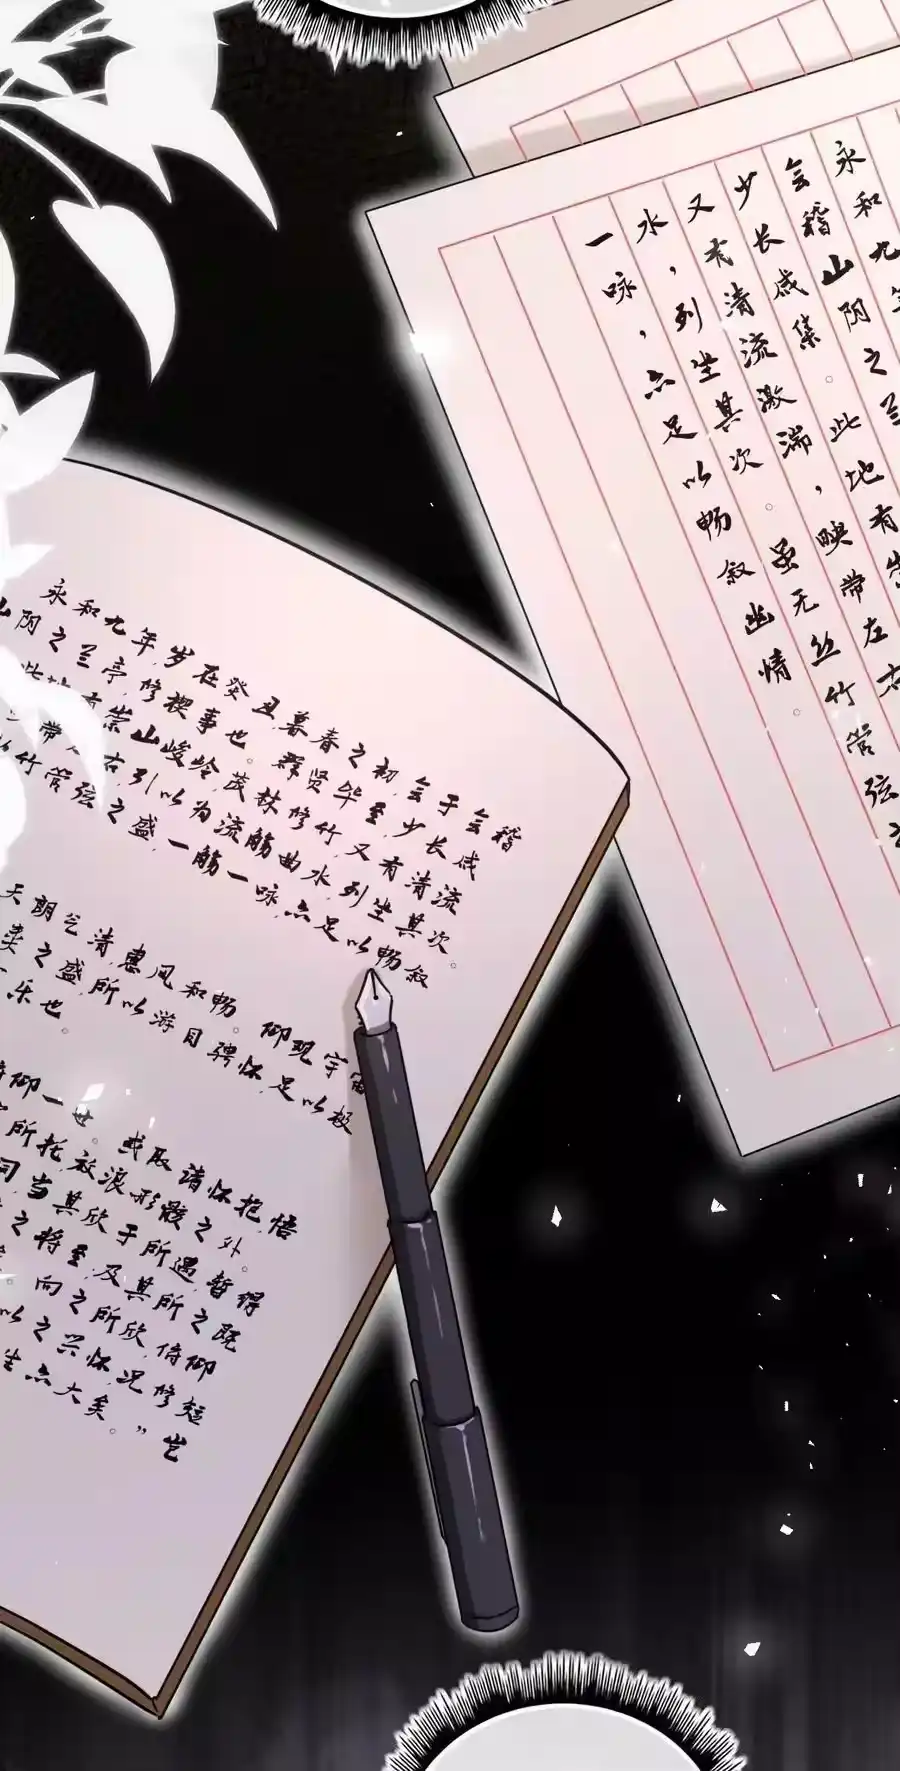 永和九年
会稽山阴之兰
少长咸集。此地有崇
又有清流激湍，映带左右
水，列坐其次。虽无丝竹管弦之
一咏，亦足以畅叙幽情。
永和九年,岁在癸丑,暮春之初,会于会稽
山阴之兰亭,修禊事也。群贤毕至,少长咸
此地有崇山峻岭,茂林修竹,又有清流
带左右,引以为流觞曲水,列坐其次。
竹管弦之盛,一觞一咏,亦足以畅叙
天朗气清,惠风和畅。仰观宇宙
类之盛,所以游目骋怀,足以极
乐也。
俯仰一世。或取诸怀抱,悟
所托,放浪形骸之外。
同,当其欣于所遇,暂得
之将至,及其所之既
。向之所欣,俯仰
以之兴怀,况修短
生亦大矣。”岂